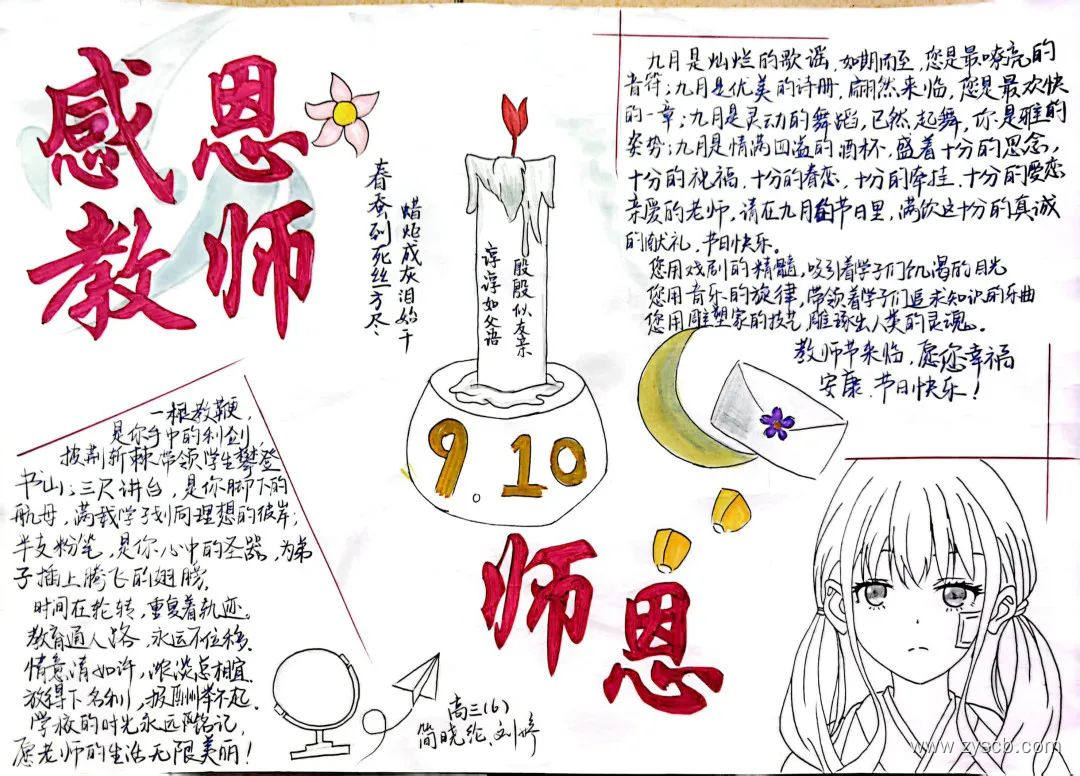 感恩
教师
春蚕到死丝方尽
蜡炬成灰泪始干
谆谆如父语
殷殷似友亲
9.10
师恩
九月是灿烂的歌谣,如期而至,您是最嘹亮的
音符;九月是优美的诗册,翩然来临,您是最欢快
的一章;九月是灵动的舞蹈,已然起舞,你是雅的
姿势;九月是情满四溢的酒杯,盛着十分的思念,
十分的祝福,十分的眷恋,十分的牵挂,十分的爱恋
亲爱的老师,请在九月的节日里,满饮这十分的真诚
的献礼,节日快乐。
您用戏剧的精髓,吸引着学子们饥渴的目光
您用音乐的旋律,带领着学子们追求知识的乐曲
您用雕塑家的技艺,雕琢出人类的灵魂。
教师节来临,愿您幸福
安康,节日快乐!
一根教鞭,
是你手中的利剑
披荆斩棘带领学生攀登
书山;三尺讲台,是你脚下的
航母,满载学子划向理想的彼岸;
半支粉笔,是你心中的圣器,为弟
子插上腾飞的翅膀。
时间在轮转,重复着轨迹。
教育通人路,永远不位移.
情意清如许,浓淡总相宜.
放得下名利,报酬举不起.
学校的时光永远铭记,
愿老师的生活无限美丽!
高三(6)
简晓纶、刘婷
www.zyscb.com